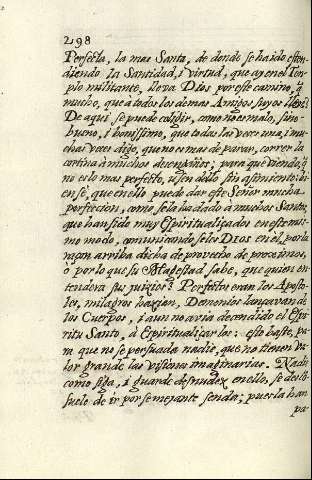 298
Perfecta, la mas Santa, de donde se ha ido esten-
diendo la Santidad, i virtud, que ay en el Tem-
plo militante, lleva Dios por este camino, q̃
mucho, que a todos los demas Amigos suyos lleve?
De aqui se puede colegir, como no es malo, sino
bueno, i bonissimo, que todas las veces una, i mu-
chas veces digo, que no es mas de parar, correr la
cortina à muchos
no es lo mas perfecto, usen dello sin asimiento: bi-
en sè, que en ello puede dar este Señor mucha
perfeccion, como se la ha dado à muchos Santos,
que han sido muy Espiritualizados en este mis-
mo modo, comunicandoselos DIOS en èl, por la
raçon arriba dicha de provecho de proximos,
ò por lo que su Magestad sabe, que quien en-
tenderà sus juizios? Perfectos eran los Aposto-
les, milagros hazien, Demonios lançavan de
los Cuerpos, i aun no avia decendido el Espi-
ritu Santo, à Espiritualiçarlos: esto baste, pa-
ra que no se persuada nadie, que no tienen va-
lor grande las visiones imaginarias. Nadie
como siga, i guarde desnudez en ello, se des
suele de ir por semejante senda; pues la han
pa-